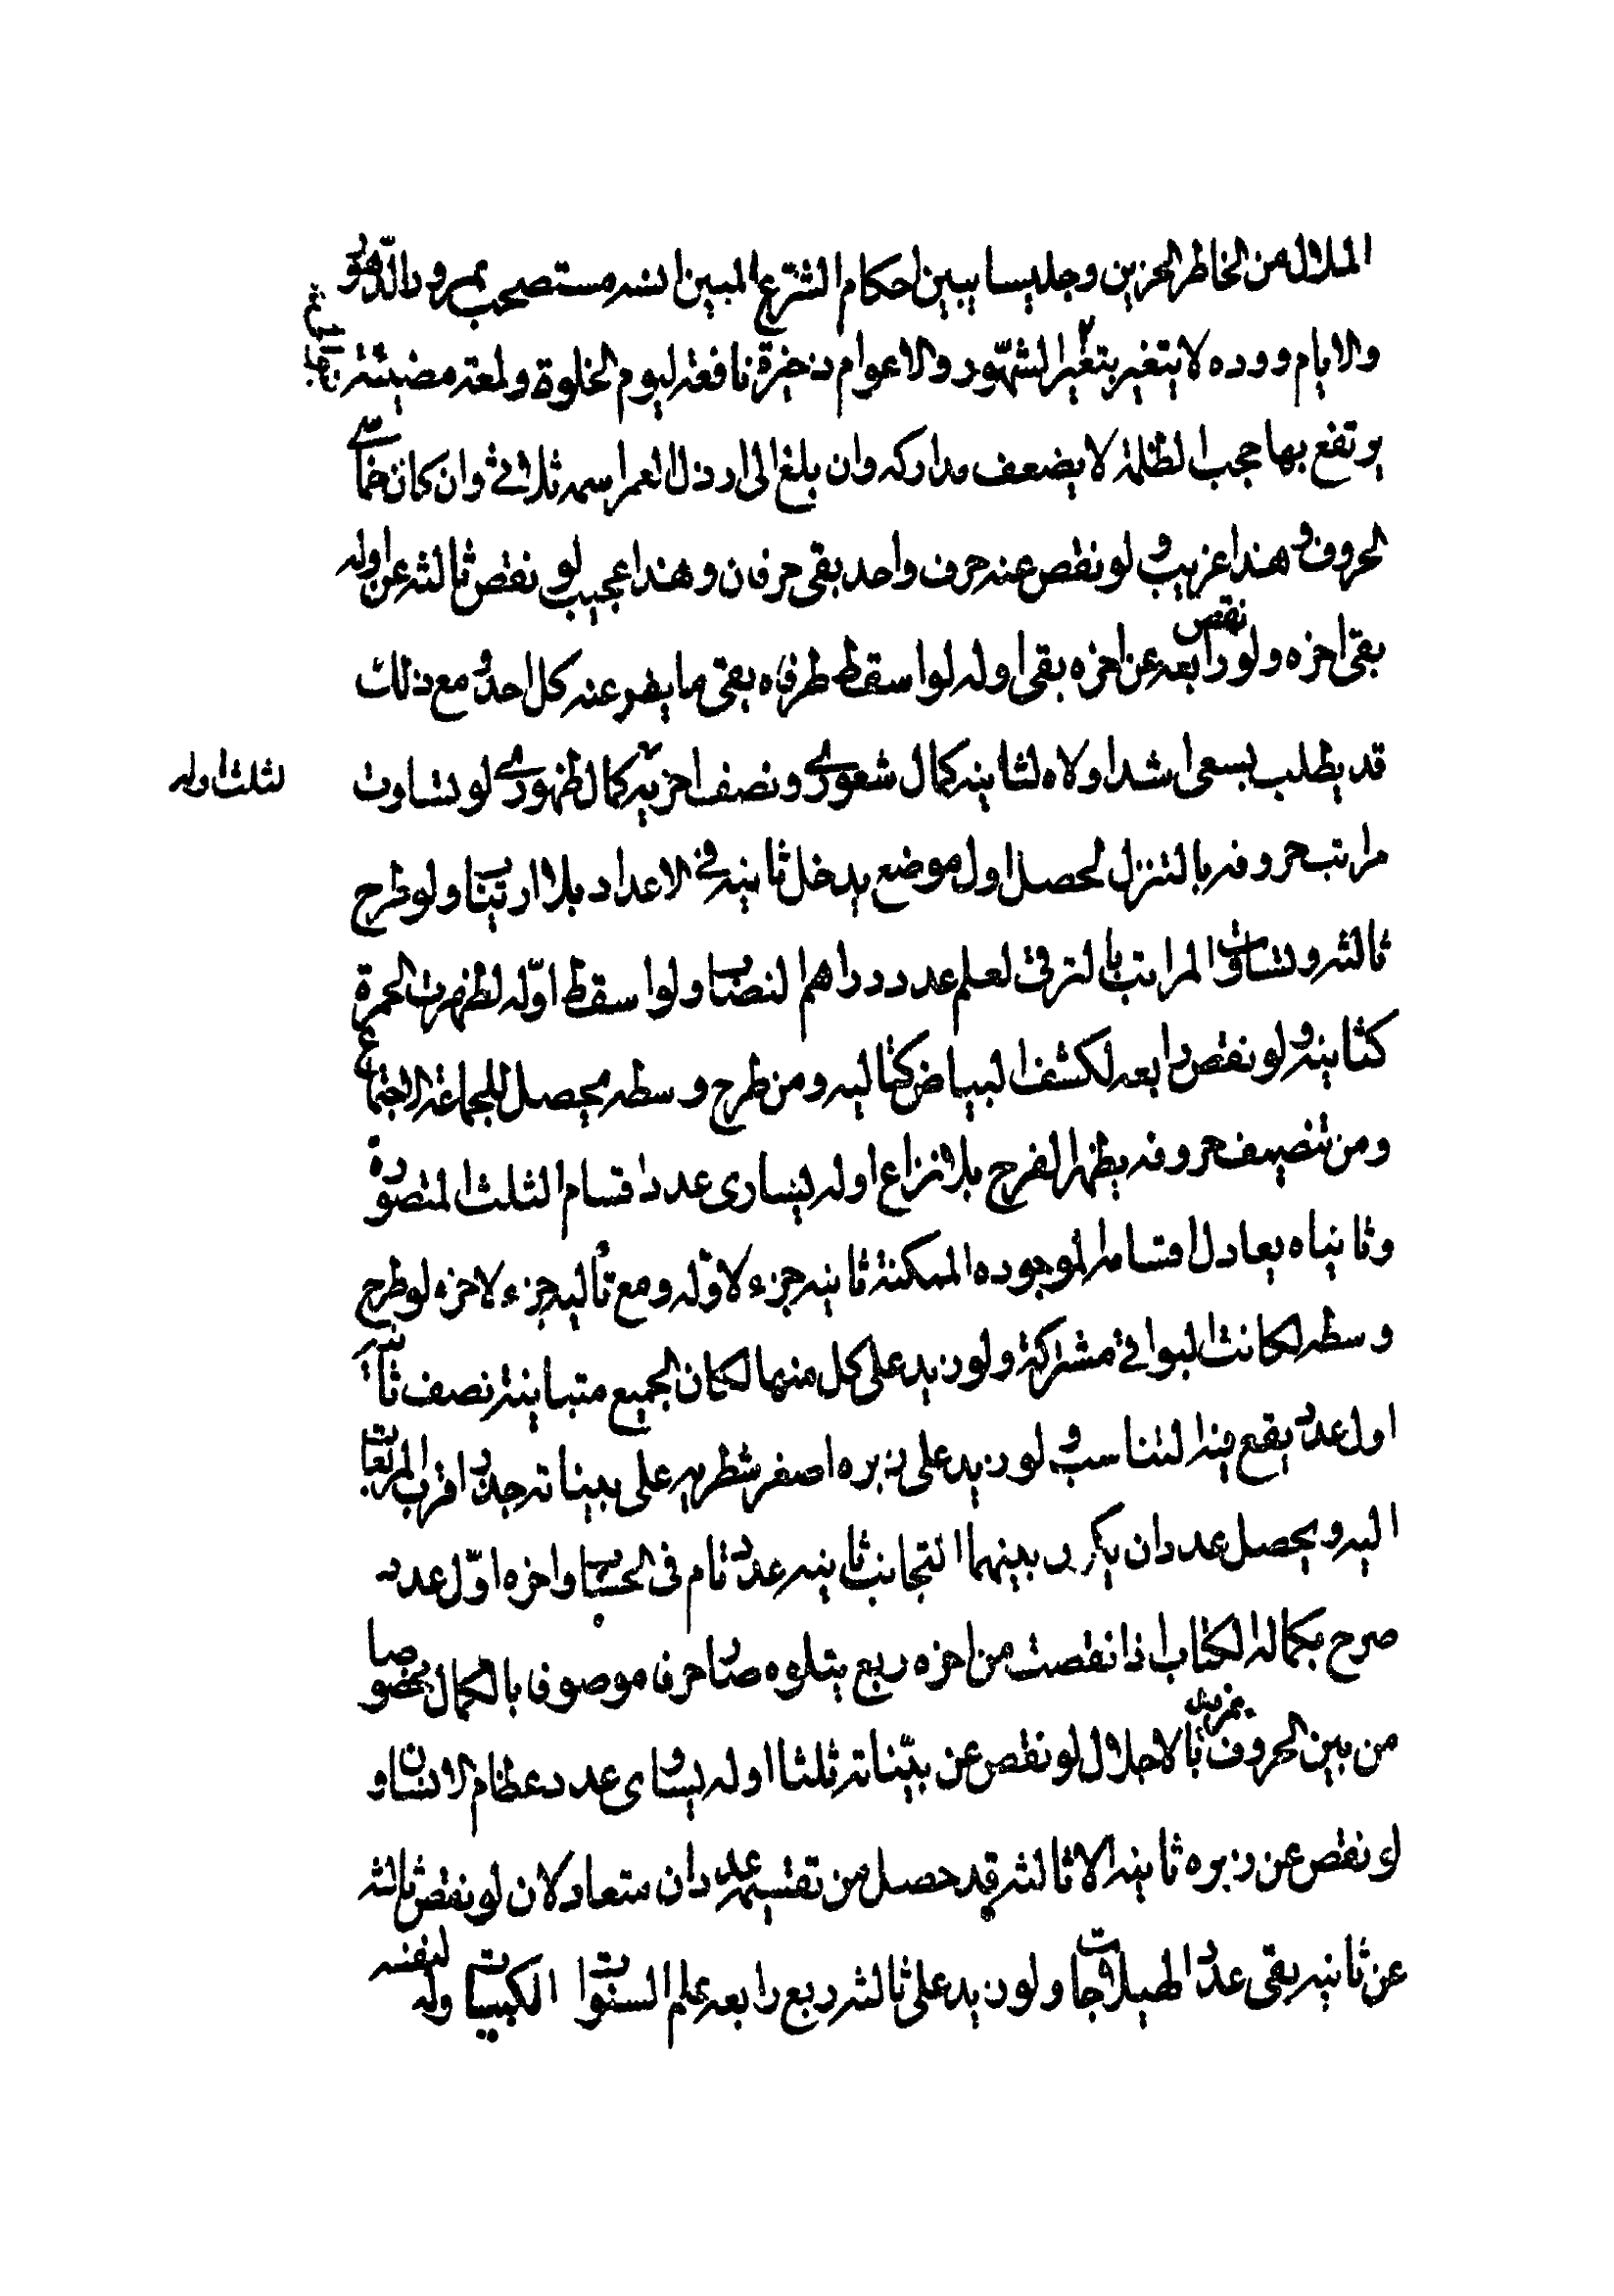 الملال من الخاطر الحزين وجليسا يبين احكام الشرع المبين انسه مستصحب بمرور الدهور
والايام ووده لا يتغير بتغير الشهور والاعوام ذخيرة نافعة ليوم الخلوة ولمعة مضيئة
يرتفع بها حجب الظلمة لا يضعف مداركه وان بلغ الى ارذل العمر اسمه ثلاثي وان كان خماسي
الحروف وهذا غريب ولو نقص عنه حرف واحد بقى حرفان وهذا عجيب لو نقص ثالثه عن اوله
بقى اخره ولو نقص رابعه عن اخره بقى اوله لو اسقط طرفاه بقى ما يفر عنه كل احد ومع ذلك
قد يطلب بسعى اشد اولاه لثانيه كمال شعوري ونصف اخريه كمال ظهوري لو تساوت
لثلث اوله
مراتب حروفه بالتنزل لحصل اول موضع يدخل ثانيه في الاعداد بلا ارتياب ولو طرح
ثالثه وتساوت المراتب بالترقي لعلم عدد دراهم النصاب ولو اسقط اوله لظهرت الحمرة
كثانيه ولو نقص رابعه لكشف البياض كتاليه ومن طرح وسطه يحصل للجماعة الاجتماع
ومن تنصيف حروفه يظهر الفرح بلا نزاع اوله يساوى عدد اقسام الثلث المتصورة
وثانياه يعادل اقسامه الموجوده الممكنة ثانيه جزء لاوله ومع تاليه جزء لاخره لو طرح
وسطه لكانت البواقي مشتركة ولو زيد على كل منهما لكان الجميع متباينة نصف ثانيه
اول عدد يقع فيه التناسب ولو زيد على زبره اصفر شطريه على بيناته جدد اقرب المربعات
اليه ويحصل عددان يكرر بينهما التجانب ثانيه عدد تام في الحساب واخره اول عدد
صرح بكماله الكتاب اذا نقصت من اخره ربع يتلوه صار حرفا موصوفا بالكمال مخصوصا
من بين الحروف بمزيد الاجلال لو نقص عن بيناته ثلثا اوله يساوى عدد عظام الانسان و
لو نقص عن زبره ثانيه الا ثالثه قد حصل من تقسيمه عددان متعادلان لو نقص ثالثه
عن ثانيه بقى عدد الهيلاجات ولو زيد على ثالثه ربع رابعه علم السنوات الكبيسات وله
لنفسه